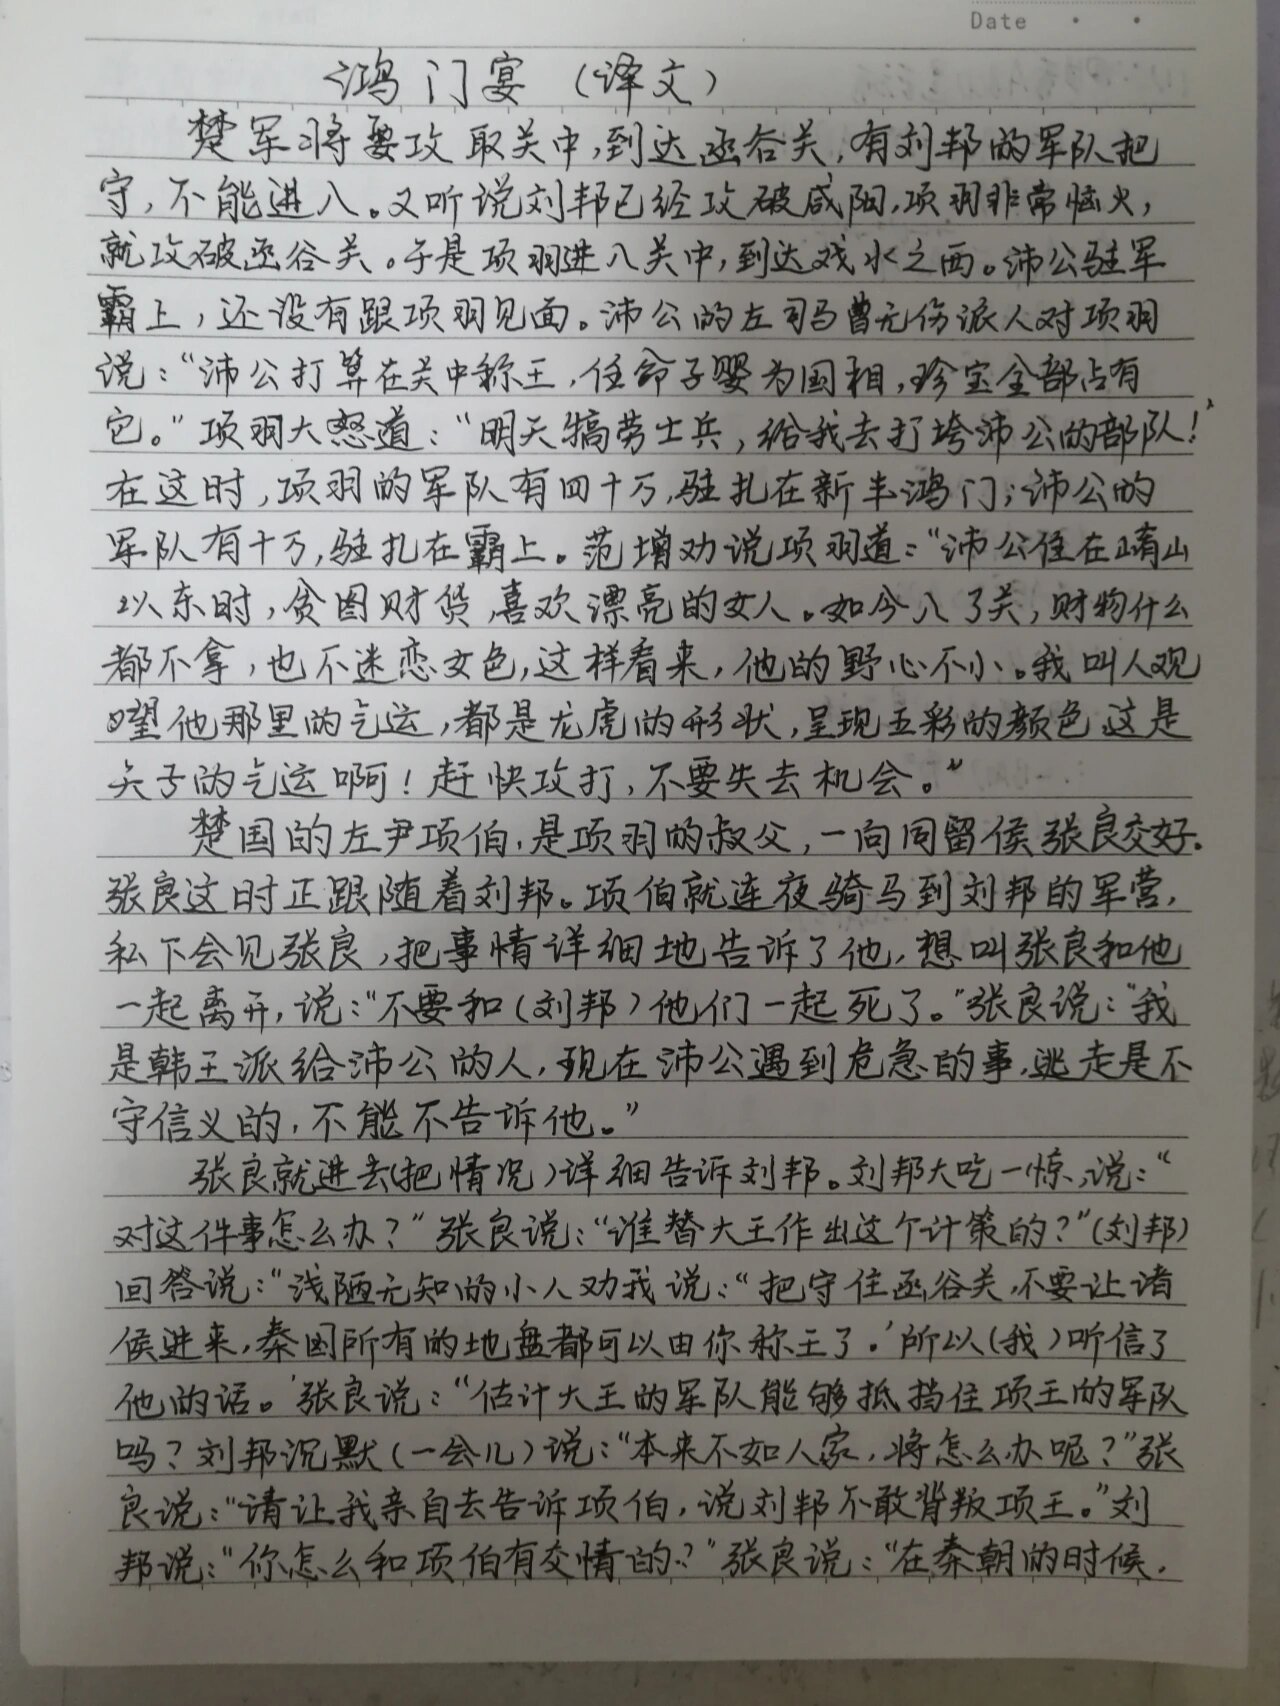 Date
鸿门宴（译文）
楚军将要攻取关中,到达函谷关,有刘邦的军队把
守,不能进入。又听说刘邦已经攻破咸阳,项羽非常恼火,
就攻破函谷关。于是项羽进入关中,到达戏水之西。沛公驻军
霸上,还没有跟项羽见面。沛公的左司马曹无伤派人对项羽
说:“沛公打算在关中称王,任命子婴为国相,珍宝全部占有
它。”项羽大怒道:“明天犒劳士兵,给我去打垮沛公的部队!”
在这时,项羽的军队有四十万,驻扎在新丰鸿门;沛公的
军队有十万,驻扎在霸上。范增劝说项羽道:“沛公住在崤山
以东时,贪图财货,喜欢漂亮的女人。如今入了关,财物什么
都不拿,也不迷恋女色,这样看来,他的野心不小。我叫人观
望他那里的气运,都是龙虎的形状,呈现五彩的颜色,这是
天子的气运啊!赶快攻打,不要失去机会。”
楚国的左尹项伯,是项羽的叔父,一向同留侯张良交好.
张良这时正跟随着刘邦。项伯就连夜骑马到刘邦的军营,
私下会见张良,把事情详细地告诉了他,想叫张良和他
一起离开,说:“不要和(刘邦)他们一起死了。”张良说:“我
是韩王派给沛公的人,现在沛公遇到危急的事,逃走是不
守信义的,不能不告诉他。”
张良就进去(把情况)详细告诉刘邦。刘邦大吃一惊,说:“
对这件事怎么办?”张良说:“谁替大王作出这个计策的?”(刘邦)
回答说:“浅陋无知的小人劝我说:“把守住函谷关,不要让诸
侯进来,秦国所有的地盘都可以由你称王了.’所以(我)听信了
他的话。’张良说:“估计大王的军队能够抵挡住项王的军队
吗?刘邦沉默(一会儿)说:“本来不如人家,将怎么办呢?”张
良说:“请让我亲自去告诉项伯,说刘邦不敢背叛项王。”刘
邦说:“你怎么和项伯有交情的?”张良说:“在秦朝的时候,